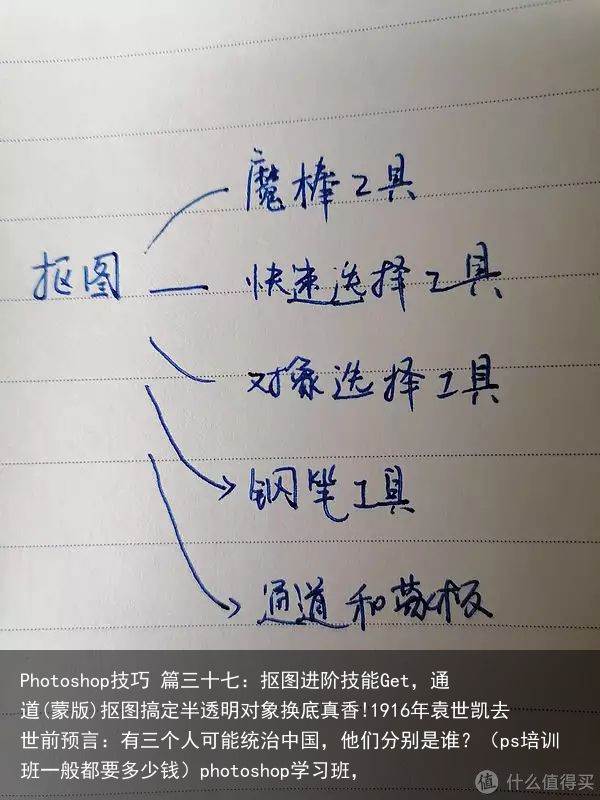 魔棒工具
抠图
快速选择工具
对象选择工具
钢笔工具
通道和蒙板
Photoshop技巧 篇三十七：抠图进阶技能Get，通
道(蒙版)抠图搞定半透明对象换底真香!1916年袁世凯去
世前预言：有三个人可能统治中国，他们分别是谁？（ps培训
班一般都要多少钱）photoshop学习班，
值 什么值得买